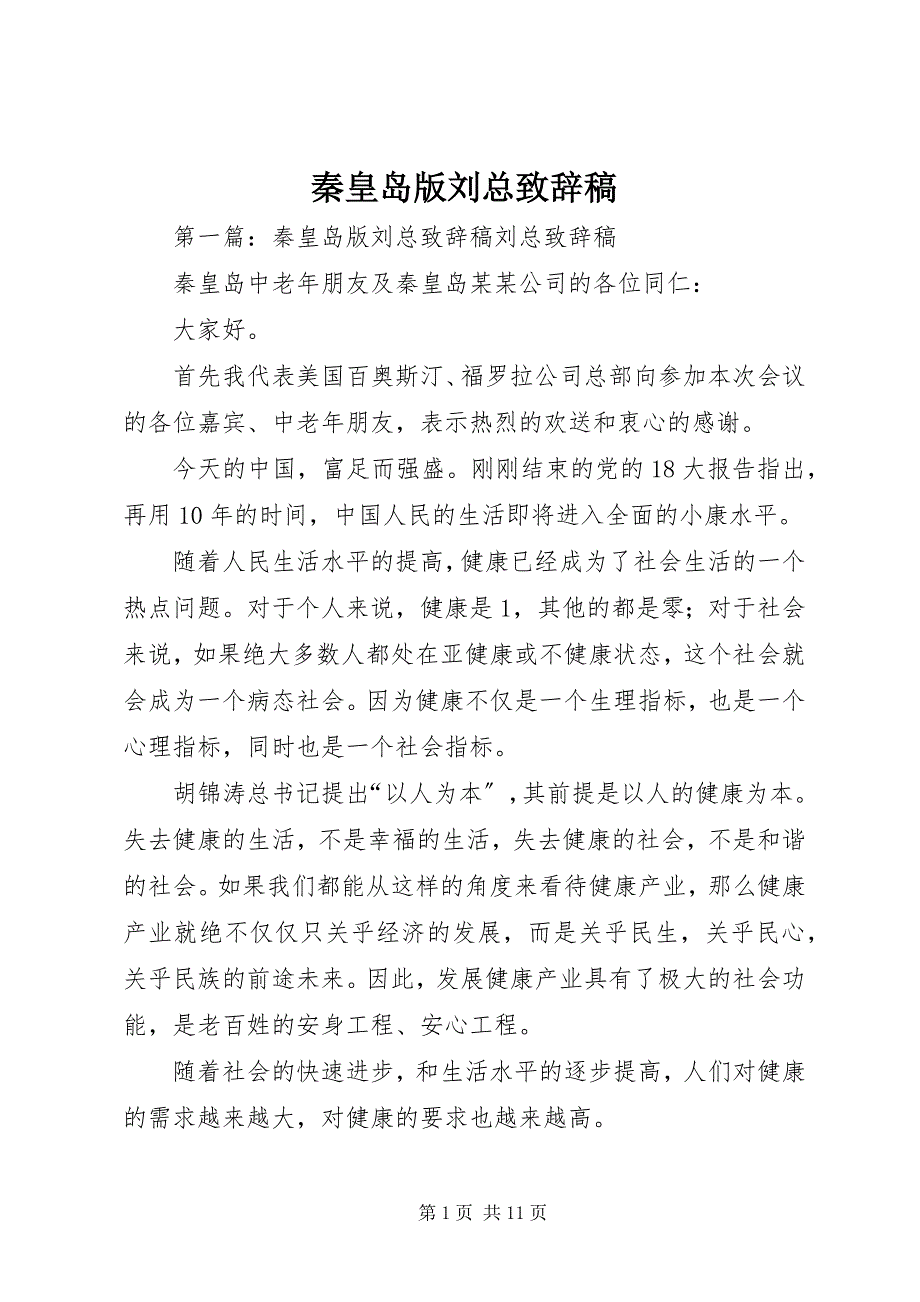 秦皇岛版刘总致辞稿
第一篇：秦皇岛版刘总致辞稿刘总致辞稿
秦皇岛中老年朋友及秦皇岛某某公司的各位同仁：
大家好。
首先我代表美国百奥斯汀、福罗拉公司总部向参加本次会议
的各位嘉宾、中老年朋友，表示热烈的欢送和衷心的感谢。
今天的中国，富足而强盛。刚刚结束的党的 18 大报告指出，
再用 10 年的时间，中国人民的生活即将进入全面的小康水平。
随着人民生活水平的提高，健康已经成为了社会生活的一个
热点问题。对于个人来说，健康是 1，其他的都是零；对于社会
来说，如果绝大多数人都处在亚健康或不健康状态，这个社会就
会成为一个病态社会。因为健康不仅是一个生理指标，也是一个
心理指标，同时也是一个社会指标。
胡锦涛总书记提出“以人为本〞,其前提是以人的健康为本。
失去健康的生活，不是幸福的生活，失去健康的社会，不是和谐
的社会。如果我们都能从这样的角度来看待健康产业，那么健康
产业就绝不仅仅只关乎经济的发展，而是关乎民生，关乎民心，
关乎民族的前途未来。因此，发展健康产业具有了极大的社会功
能，是老百姓的安身工程、安心工程。
随着社会的快速进步，和生活水平的逐步提高，人们对健康
的需求越来越大，对健康的要求也越来越高。
第 1 页 共 11 页